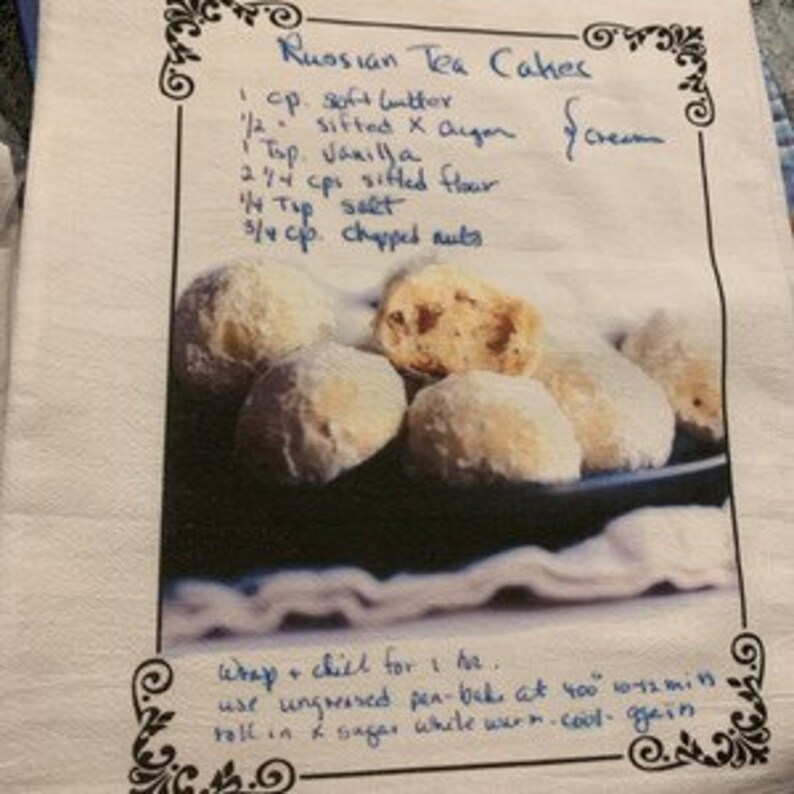 Russian Tea Cakes
1 cp. soft butter
1/2 " sifted X sugar } cream
1 Tsp. vanilla
2 1/4 cps sifted flour
1/4 Tsp salt
3/4 cp. chopped nuts
Wrap + chill for 1 hr.
use ungreased pan - bake at 400° 10-12 min
roll in X sugar while warm - cool - again